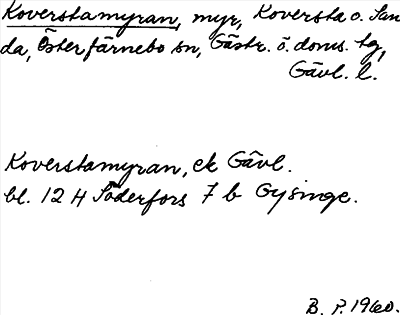 Koversta­myran, myr, Koversta o. San
da, Österfärnebo sn, Gästr. ö. doms. tg,
Gävl. l.
Koverstamyran, ek Gävl.
bl. 12 H Söderfors 7 b Gysinge.
B. P. 1960.